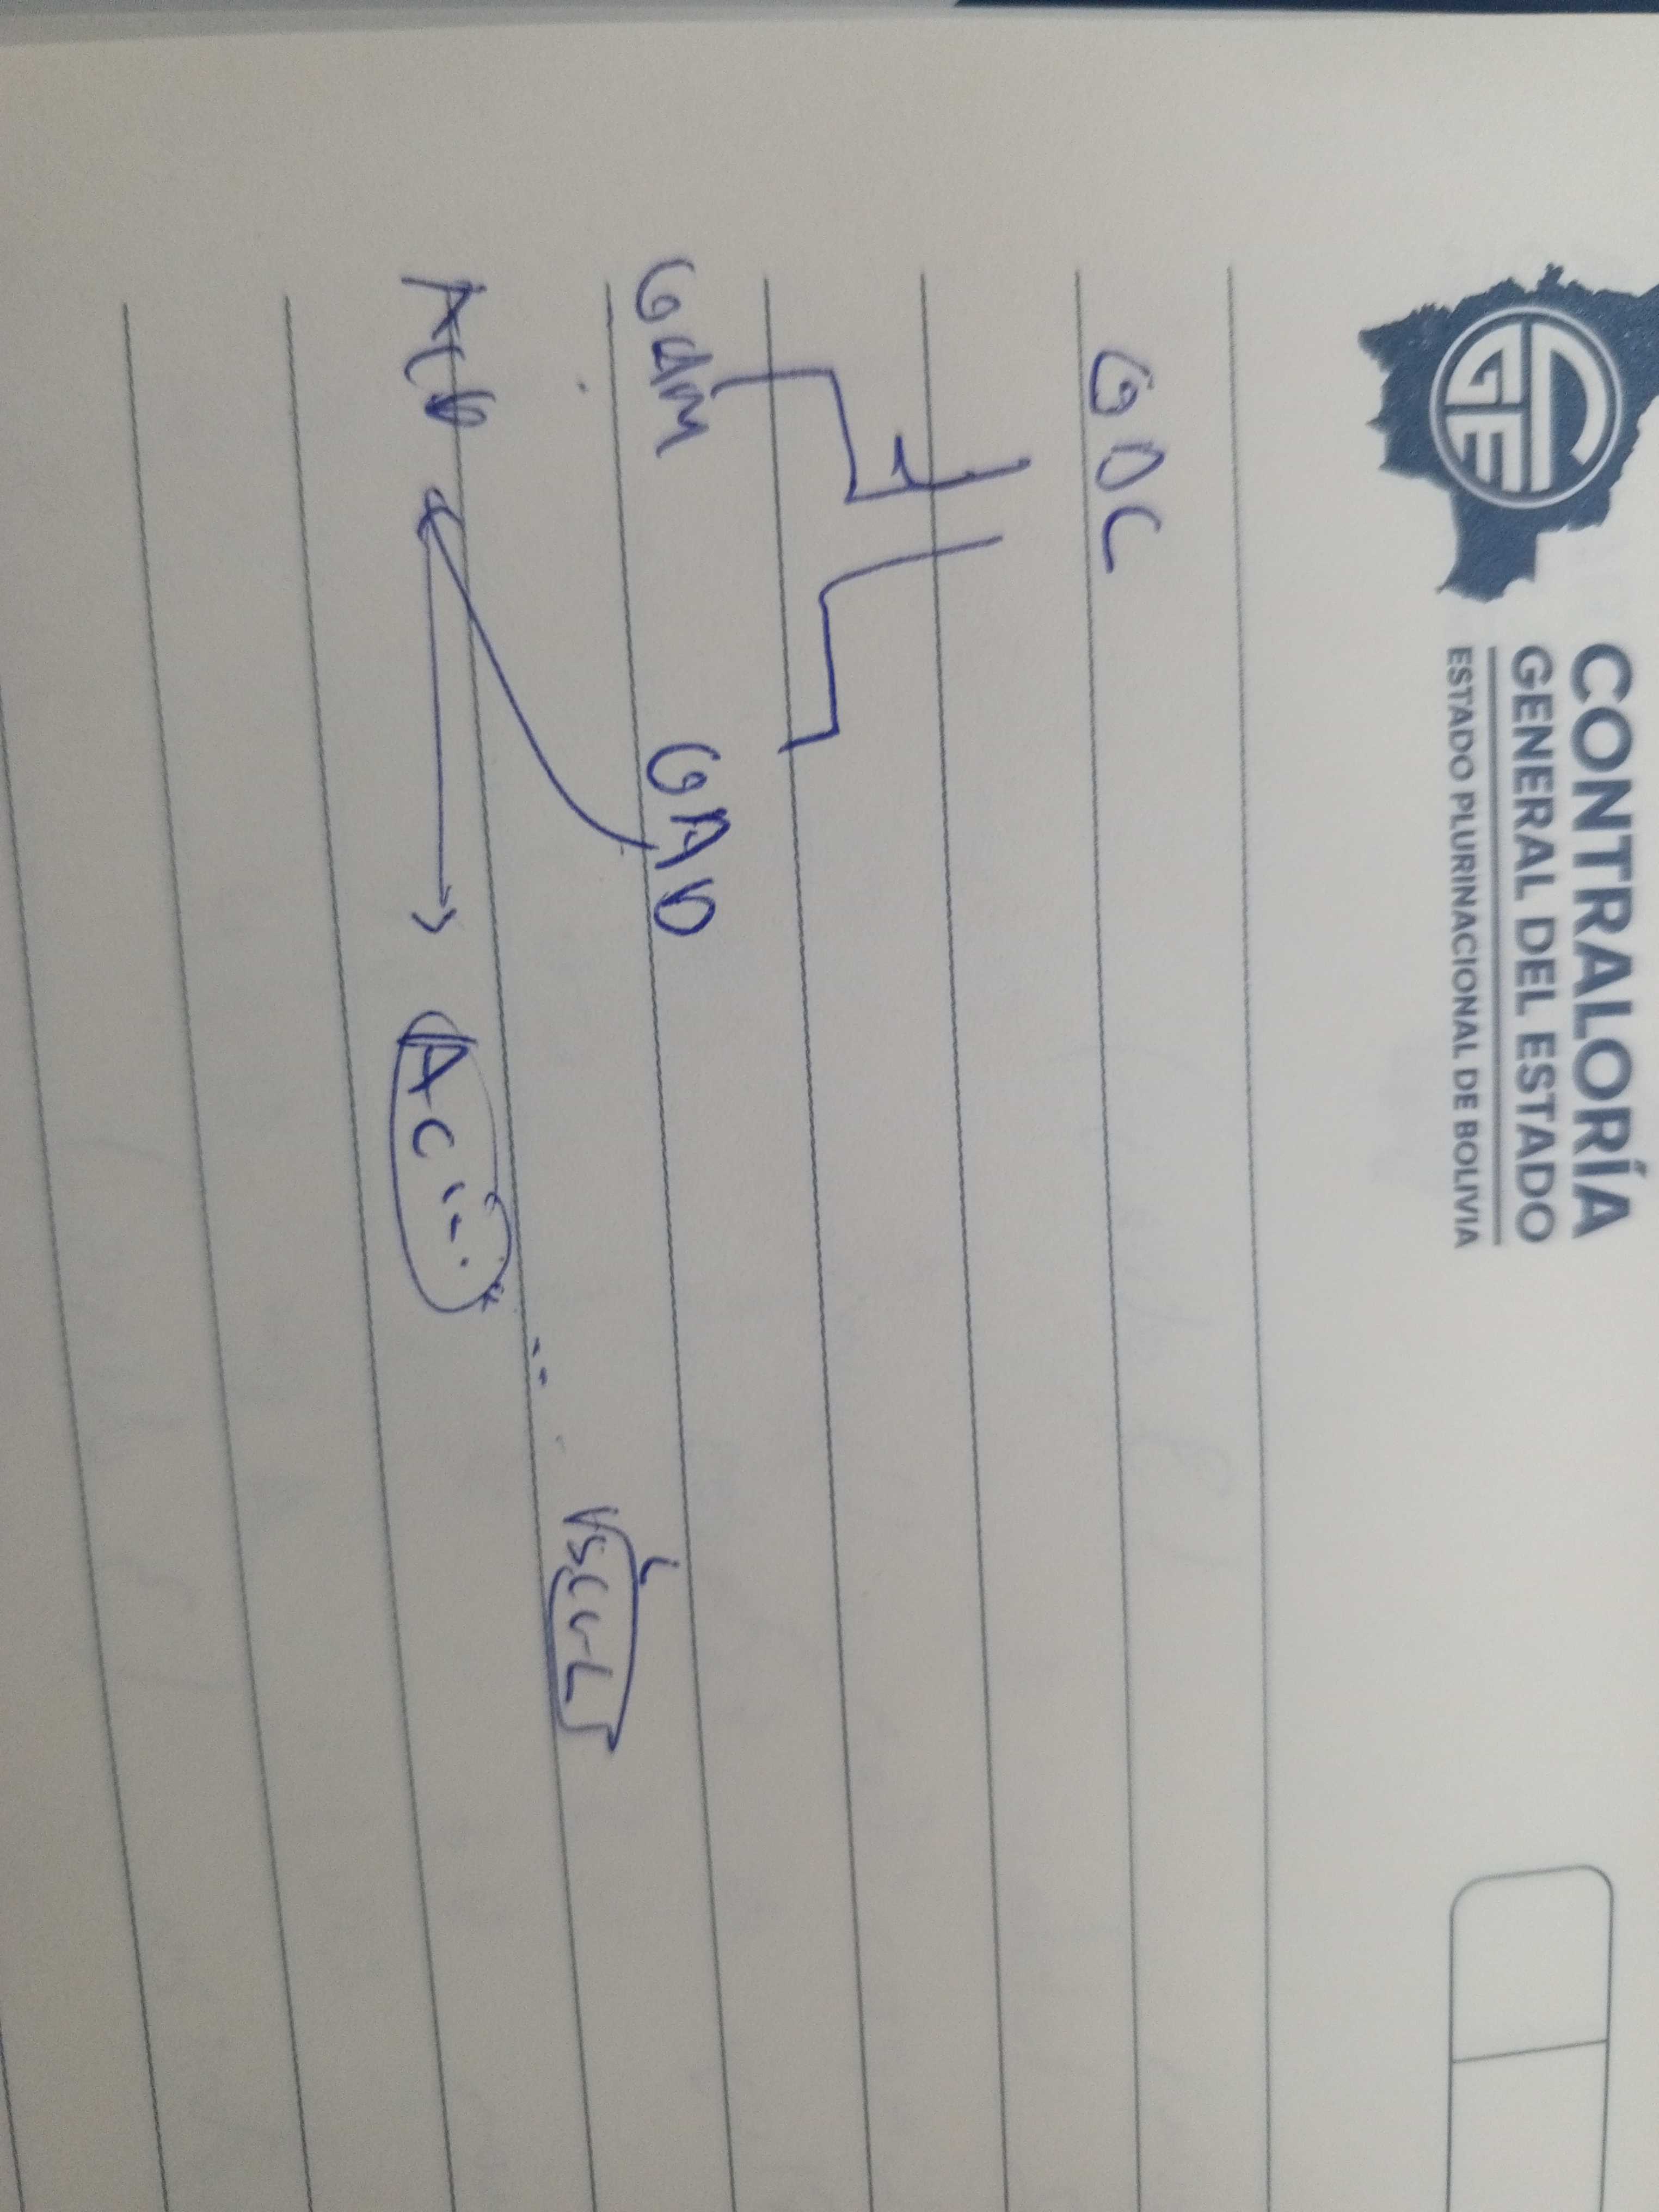 CONTRALORÍA
GENERAL DEL ESTADO
ESTADO PLURINACIONAL DE BOLIVIA
CGE
GOC
GAM GAD
AC...